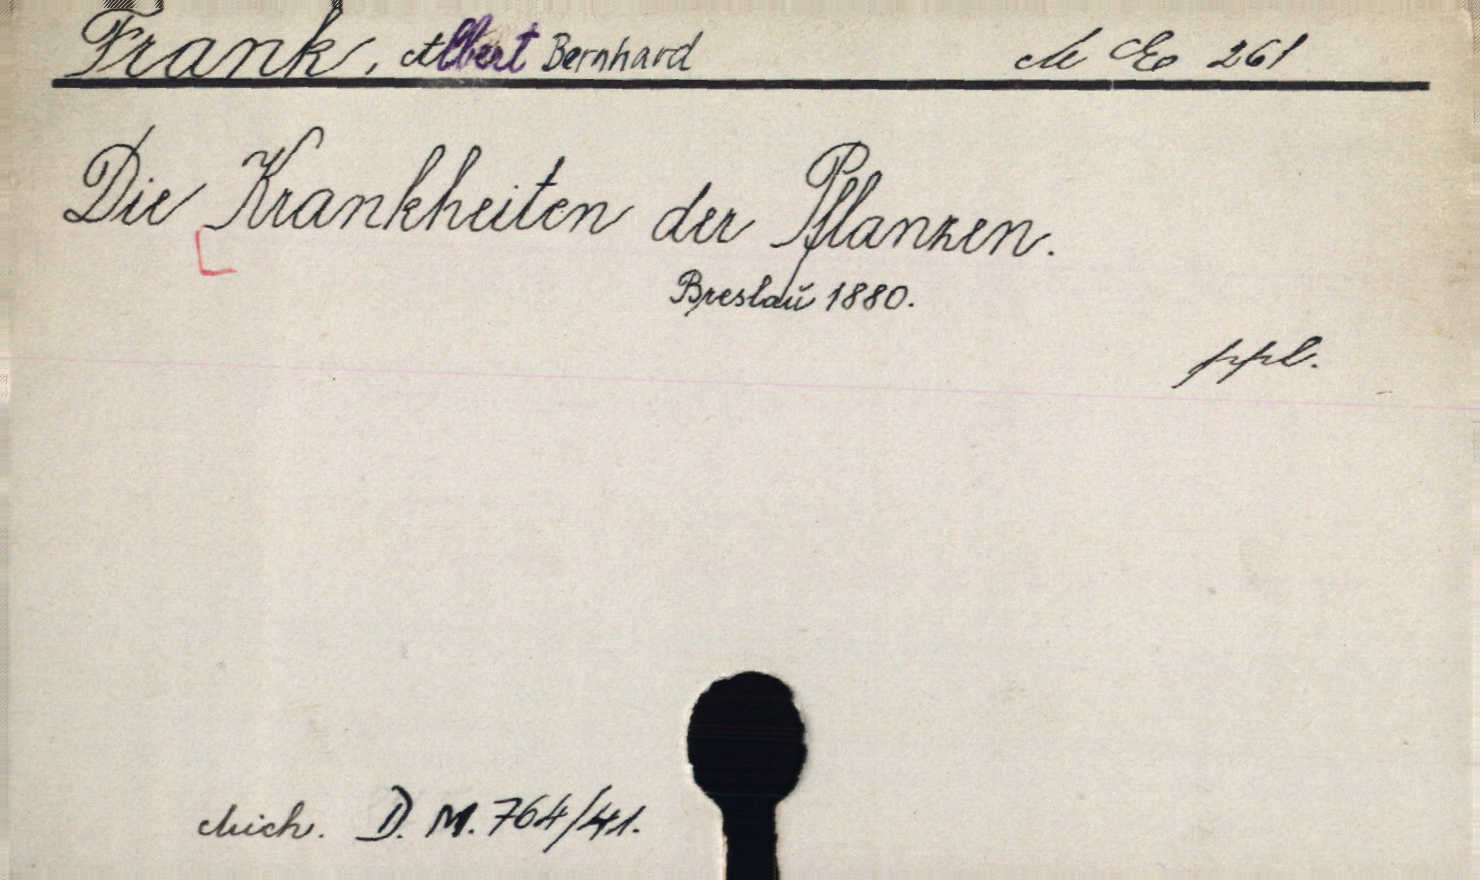 Frank, Albert Bernhard M E 261
Die Krankheiten der Pflanzen.
Breslau 1880.
ppl.
Mich. D. M. 764/41.